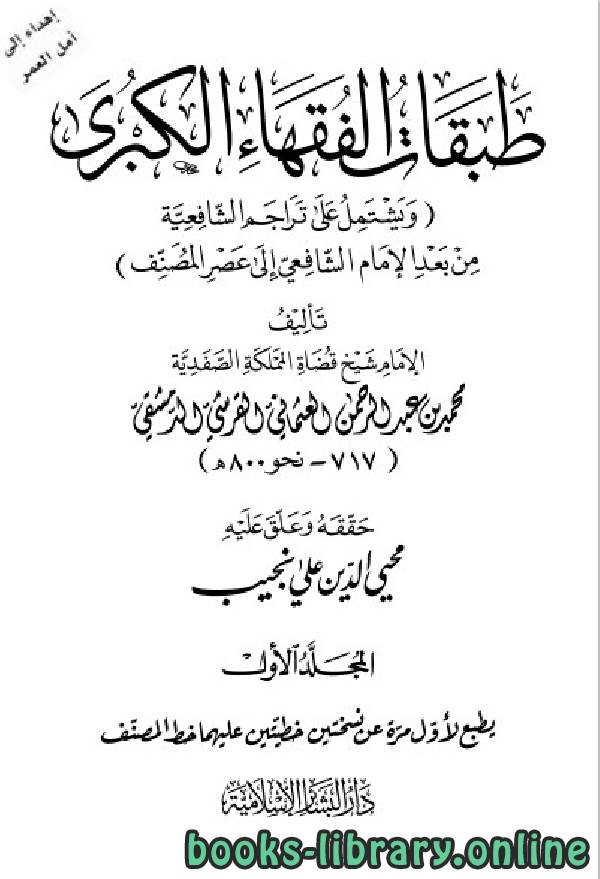 إهداء إلى
أمل العصر
طَبَقَاتُ الفُقَهَاءِ الكُبْرَى
( وَيَشْتَمِلُ عَلَى تَرَاجِمِ الشَّافِعِيَّة
مِنْ بَعْدِ الإِمَامِ الشَّافِعِيِّ إِلَى عَصْرِ المُصَنِّفِ )
تَأْلِيفُ
الإِمَامِ شَيْخِ قُضَاةِ المَمْلَكَةِ الصَّفَدِيَّة
محمد بن عبد الرحمن العثماني القرشي الدمشقي
( ٧١٧ - نحو ٨٠٠ ه )
حَقَّقَهُ وَعَلَّقَ عَلَيْهِ
محيي الدين علي نجيب
المُجَلَّدُ الأَوَّل
يطبع لأوّل مرّة عن نسختين خطيتين عليهما خط المصنّف
دَارُ البَشَائِرِ الإِسْلَامِيَّة
books-library.online